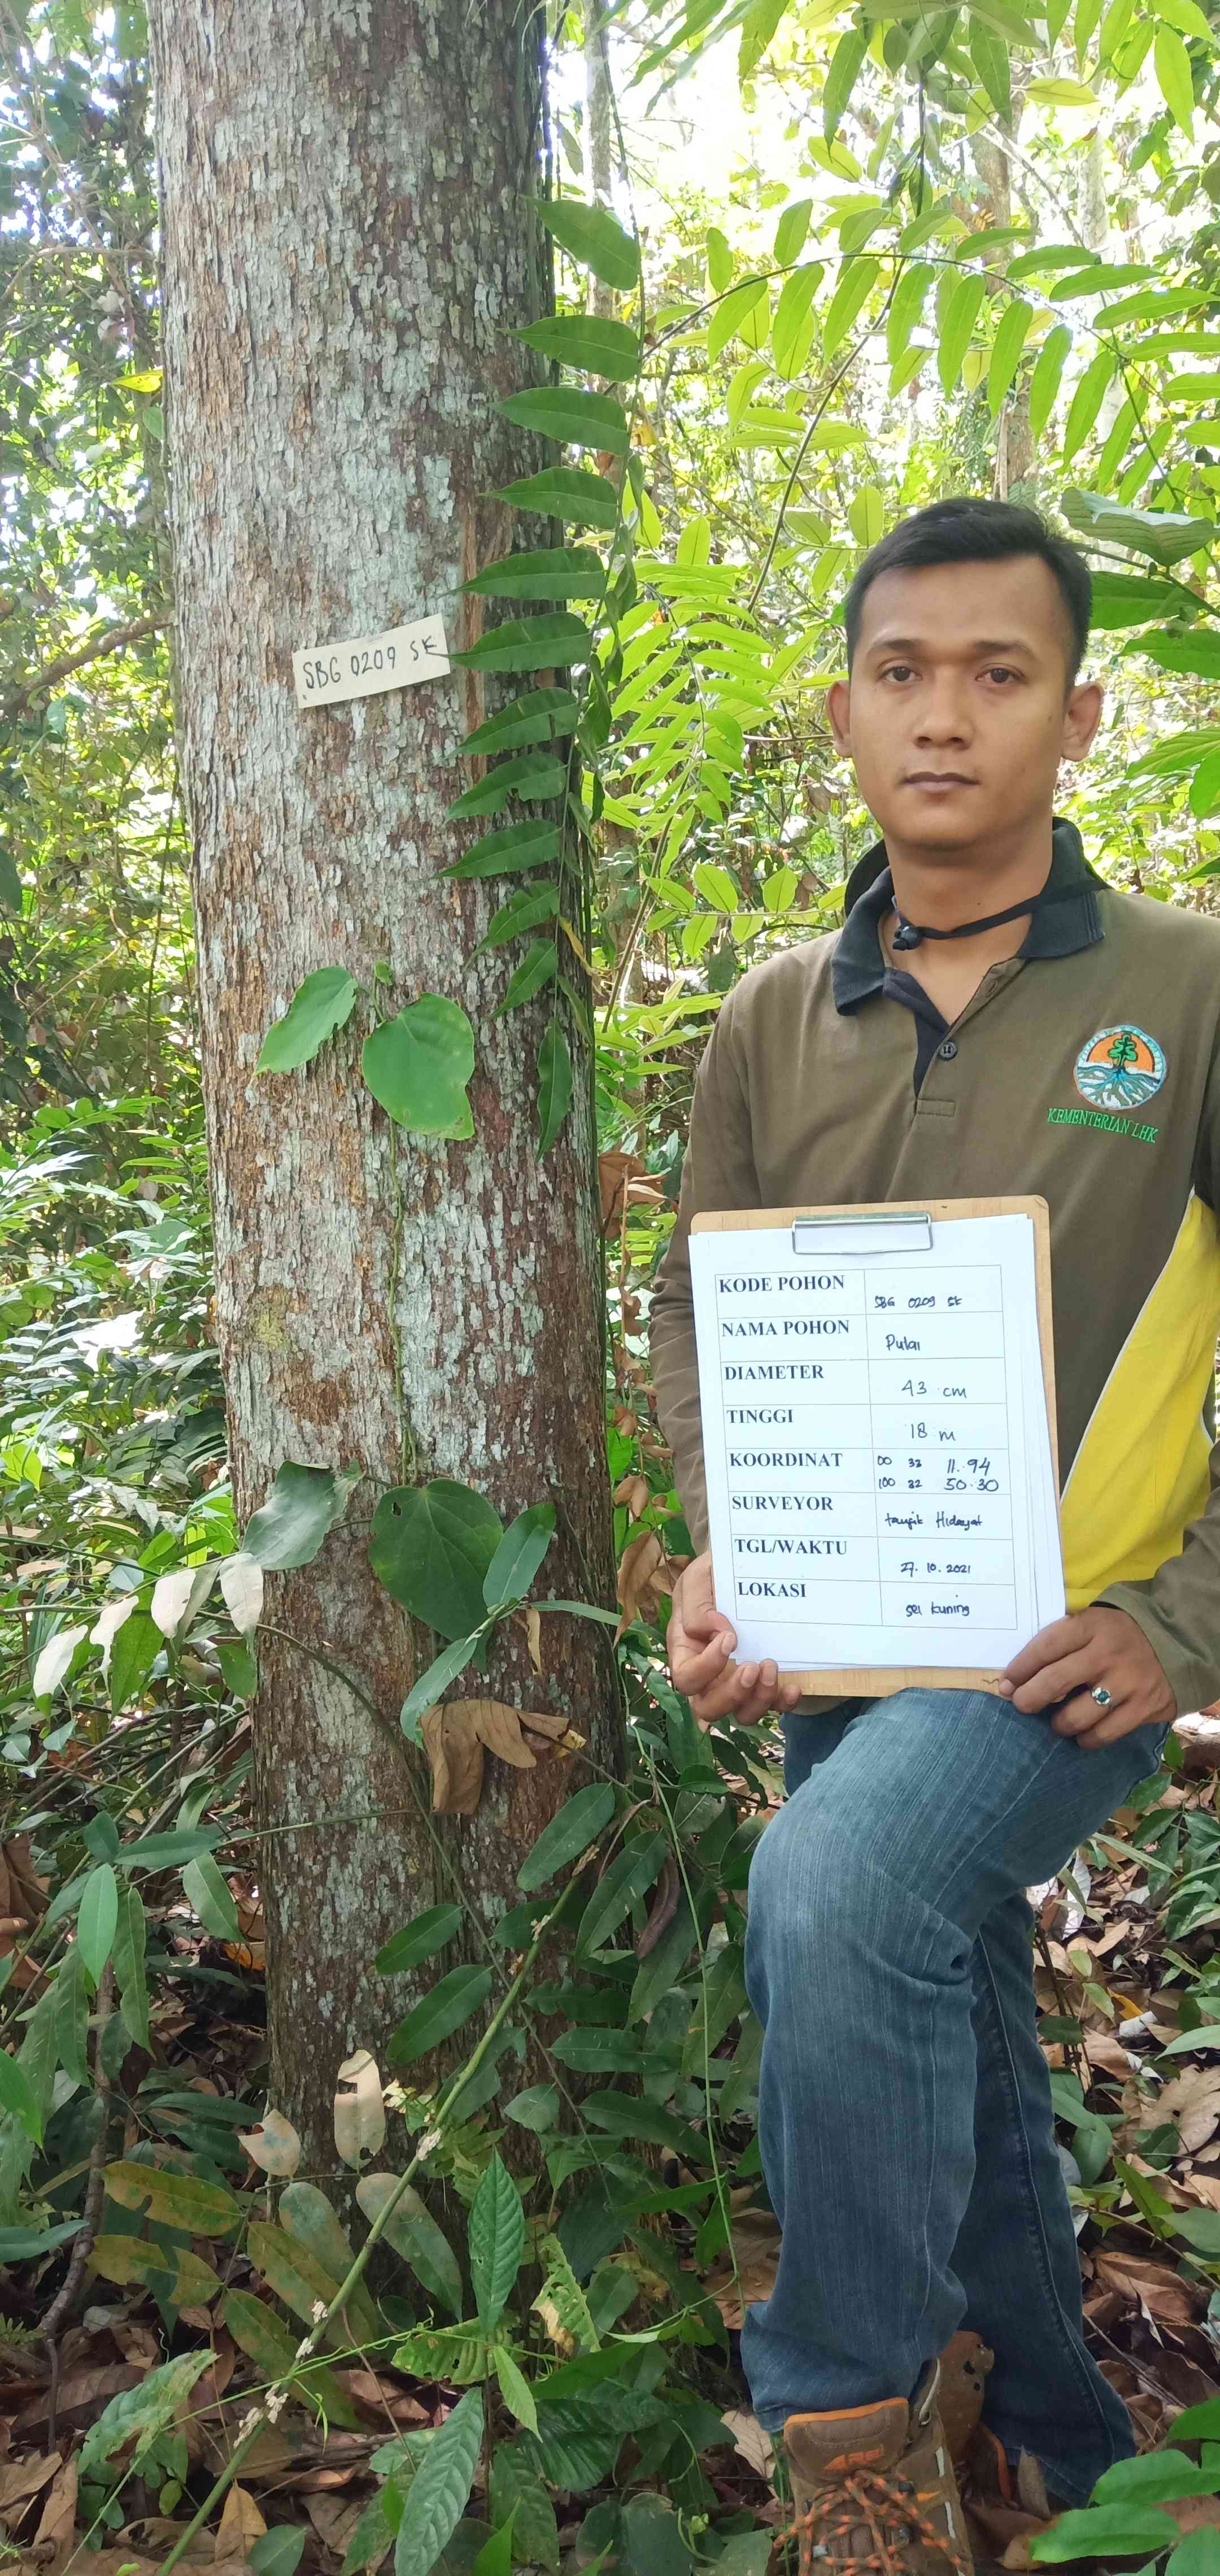 SBG 0209 SK
KEMENTERIAN LHK
KODE POHON SBG 0209 SK
NAMA POHON Pulai
DIAMETER 43 cm
TINGGI 18 m
KOORDINAT 00 33 11.94
100 32 50.30
SURVEYOR taufik Hidayat
TGL/WAKTU 27.10.2021
LOKASI sei kuning